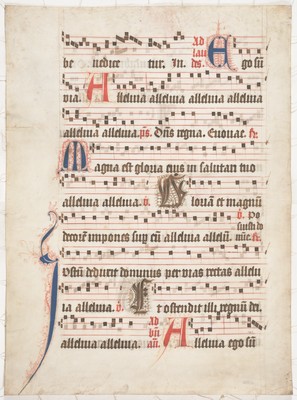 be benedicentur. In. Ad lau des. Ago sū
via. Alleluia alleluia alleluia alleluia
alleluia alleluia. p̄s. Dn̄s regna. Euouae.
Magna est gloria eius in salutari tuo
alleluia alleluia. v. Gloriā et magnū
decorē impones sup eū alleluia allelu. v. Po
Iustū deduxit dominus per vias rectas allelu
ia alleluia. v. Et ostendit illi regnum dei.
alleluia alleluia. Ad bn̄ an̄. Alleluia ego sū